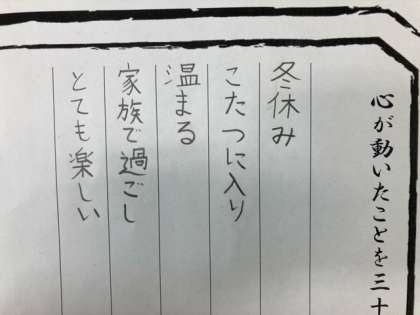 心が動いたことを三十
冬休み
こたつに入り
温まる
家族で過ごし
とても楽しい